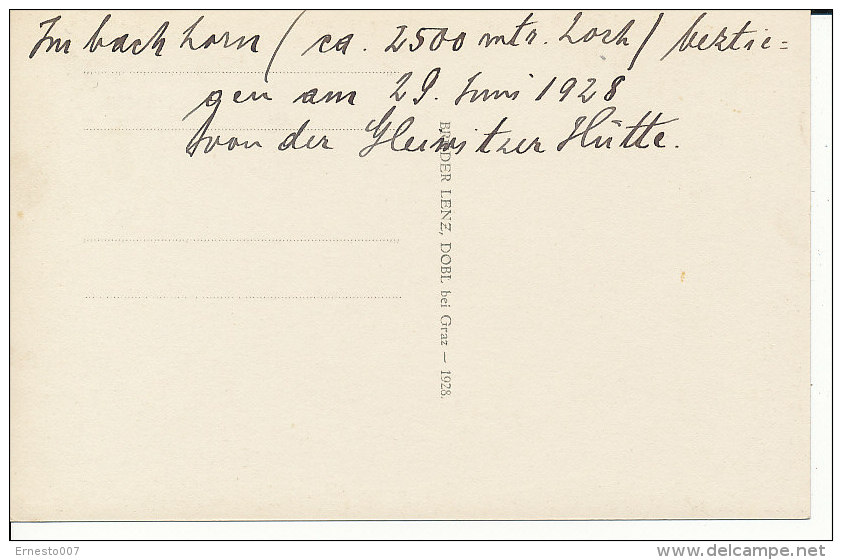 Imbachhorn / ca. 2500 mtr. hoch / bestie=
gen am 29. Juni 1928
von der Gleiwitzer Hütte.
BRÜDER LENZ, DOBL bei Graz — 1928.
Ernesto007
www.delcampe.net